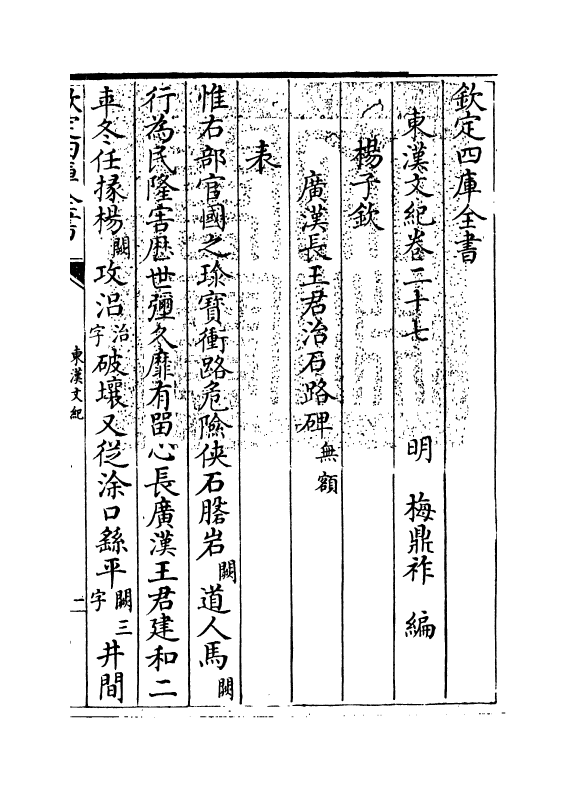 欽定四庫全書
東漢文紀卷二十七 明 梅鼎祚 編
楊子欽
廣漢長王君治石路碑 無額
表
惟右部官國之珎寶衝路危險侠石磐岩闕道人馬闕
行為民隆害厯世彌久靡有留心長廣漢王君建和二
年冬任掾楊闕攻㳂治字破壞又從涂口繇平闕三字井間
東漢文紀
二